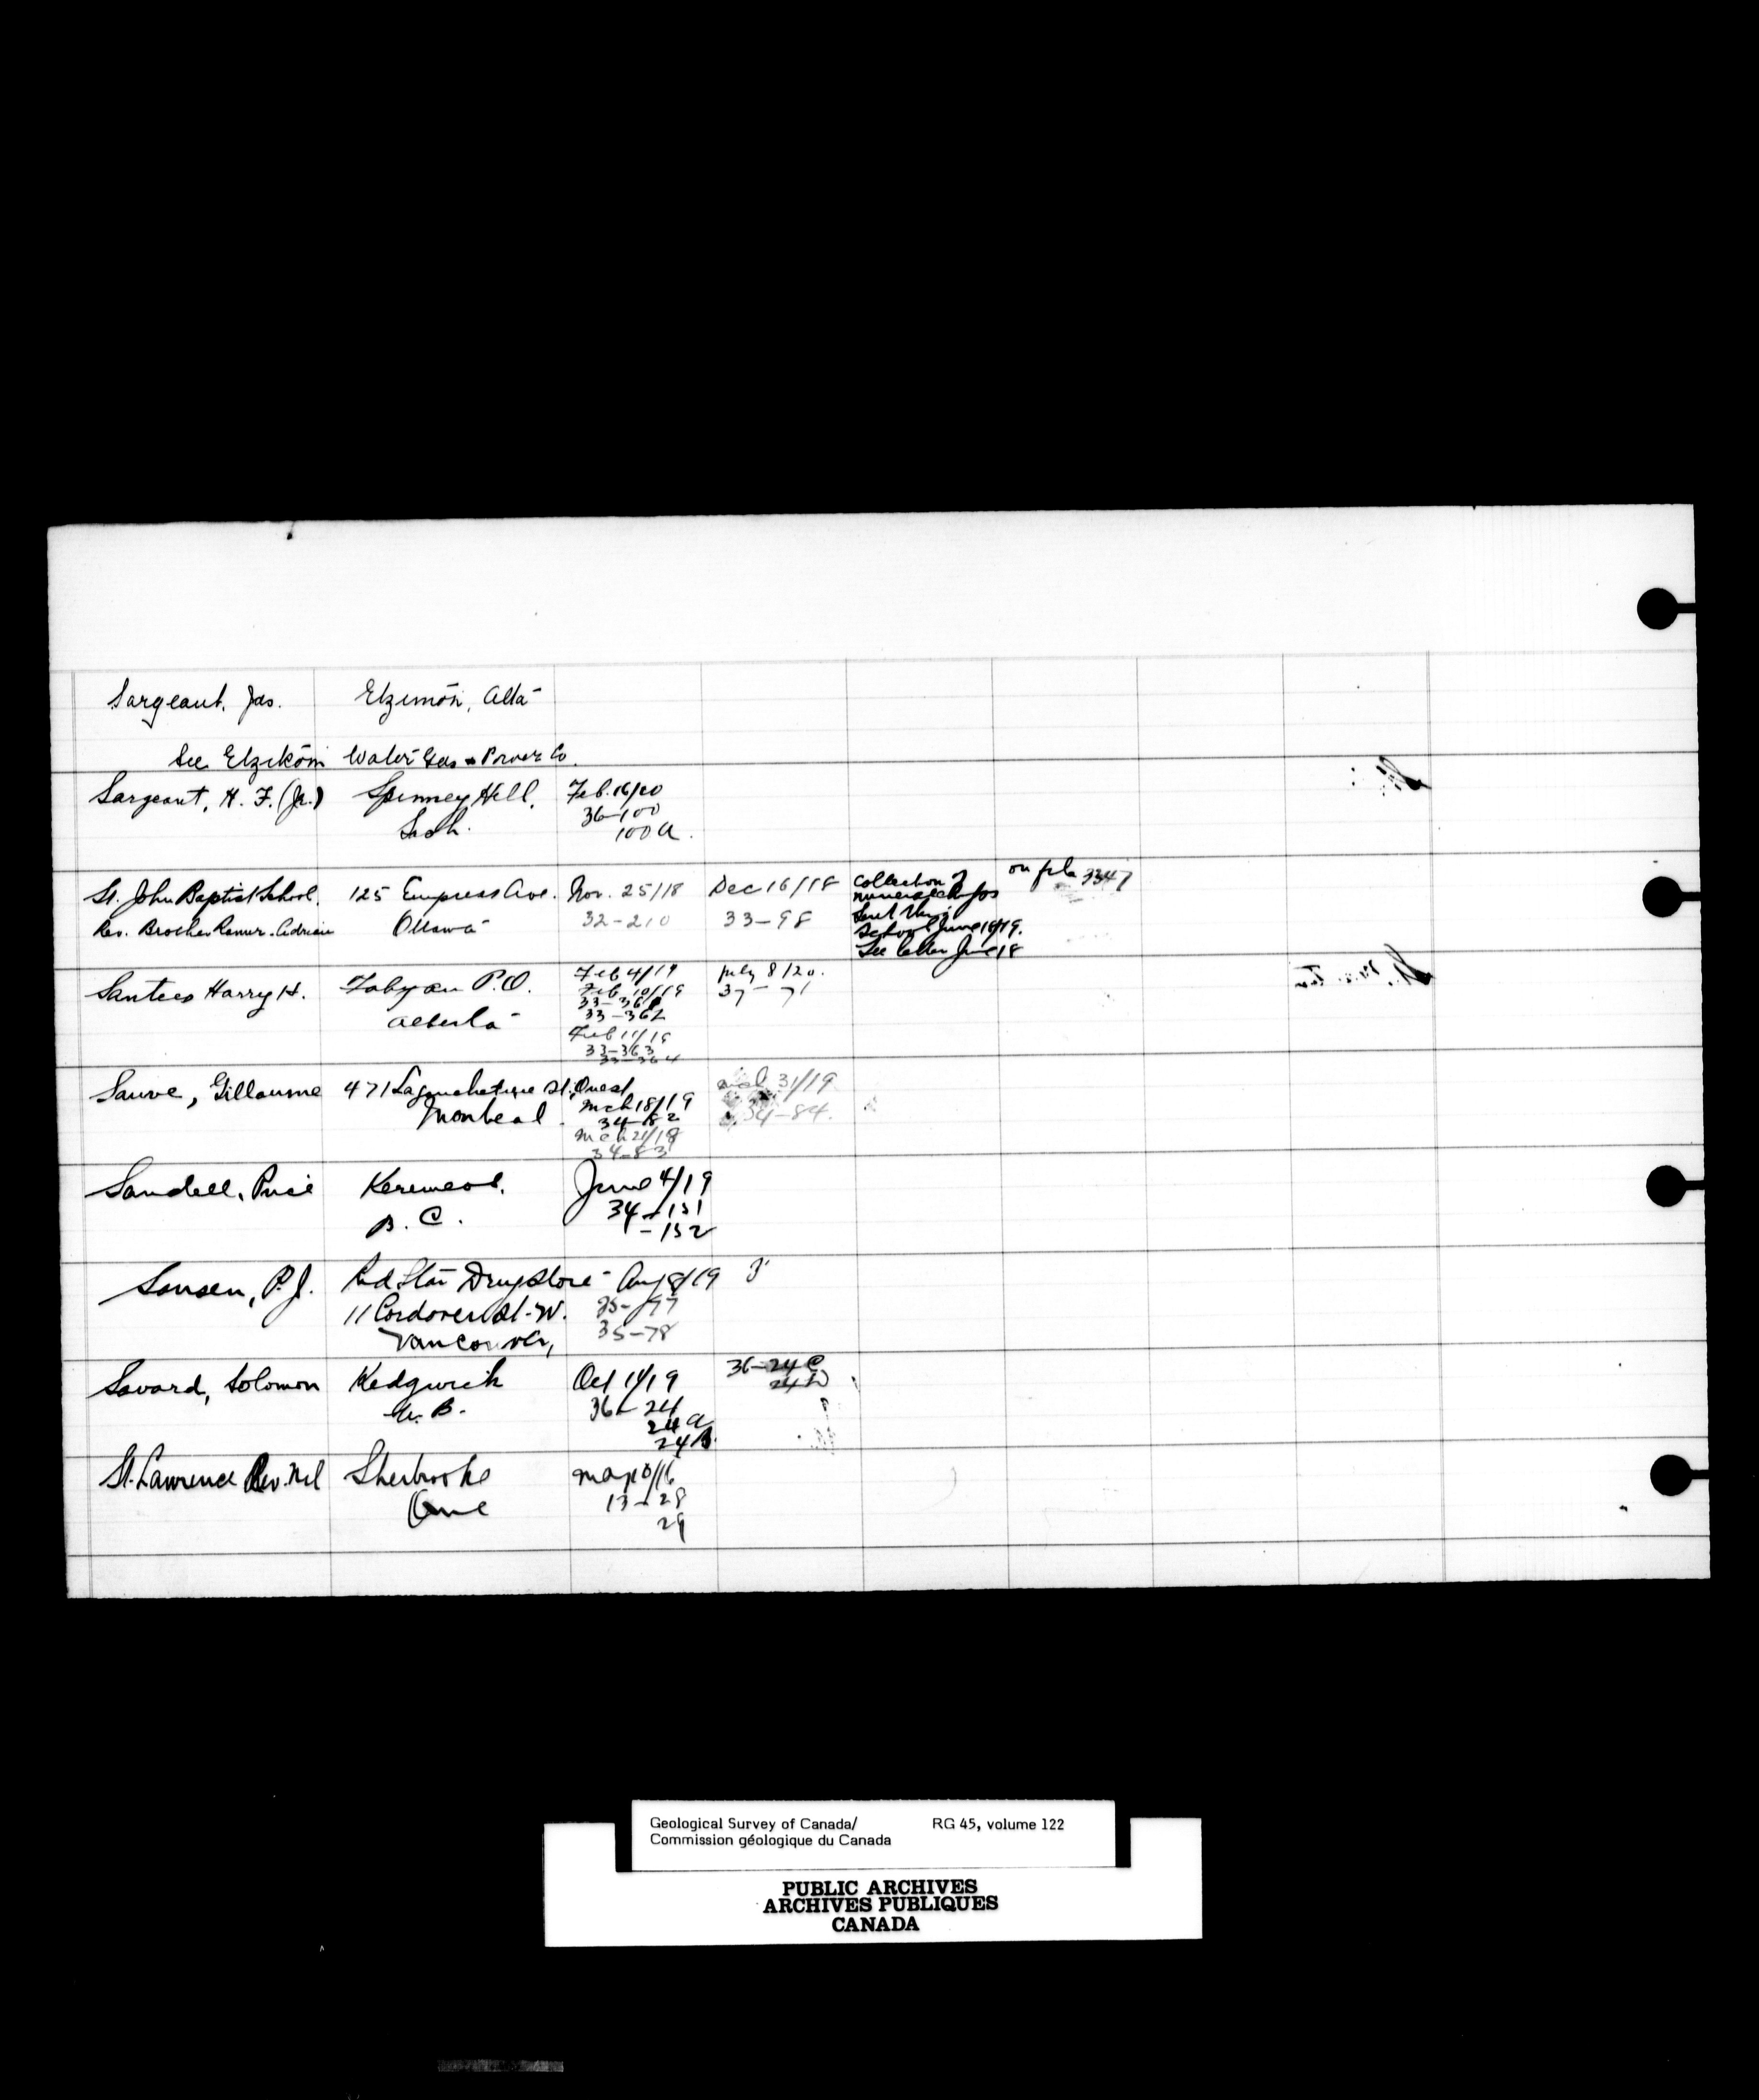 Sargeant, Jas. Etzimon, Alta
See Etzikom Water Gas & Power Co.
Sargeant, H. F. (Jr.) Spinney Hill, Feb. 16/20
Sask. 36-100
100 A.
St. John Baptist School. 125 Empress Ave. Nov. 25/18 Dec 16/18 Collection of on file 3347
mineral chips
Rev. Brother Ottawa 32-210 33-98 Sent
School June 18/19.
See letter June 18
Santees Harry H. Fabyan P.O. Feb 4/19 July 8/20.
Feb 10/19 37-71
33-361
Alberta 33-362
Feb 11/19
33-363
33-364
Sauve, Gillaume 471 Lagauchetiere St. Ouest 31/19
Montreal. Mch 18/19 34-84.
34-82
Mch 21/19
34-83
Sandell, Keremeos. June 4/19
B. C. 34-151
-152
Sansen, P. J. Red Star Drugstore - Aug 8/19
11 Cordova St. W. 35-77
Vancouver, 35-78
Savard, Solomon Kedgwick Oct 11/19 36-24 C
N. B. 36-24 24 D
24 A
24 B.
St. Lawrence Sherbrooke May 10/16
Que 13-28
29
Geological Survey of Canada/ RG 45, volume 122
Commission géologique du Canada
PUBLIC ARCHIVES
ARCHIVES PUBLIQUES
CANADA